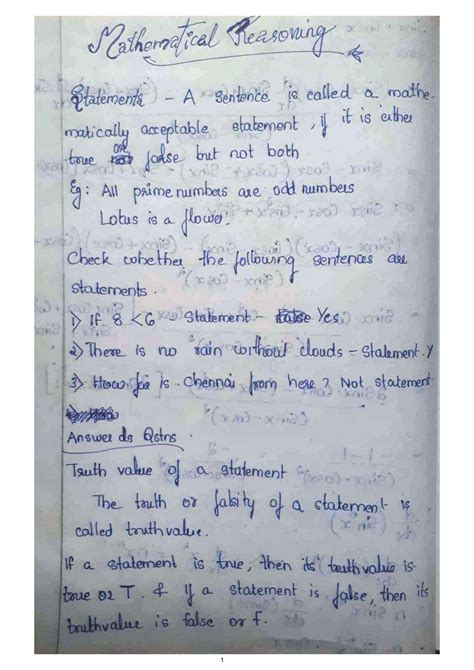 Mathematical Reasoning
Statements - A sentence is called a mathe-
matically acceptable statement, if it is either
true or false but not both
Eg: All prime numbers are odd numbers
Lotus is a flower.
Check whether the following sentences are
statements.
1) If 8 < 6 - Statement - false Yes.
2) There is no rain without clouds = Statement. Y
3) How far is Chennai from here? Not statement
Answer ds Qstns
Truth value of a statement
The truth or falsity of a statement is
called truthvalue.
If a statement is true, then its truthvalue is
true or T. & if a statement is false, then its
truthvalue is false or F.
1